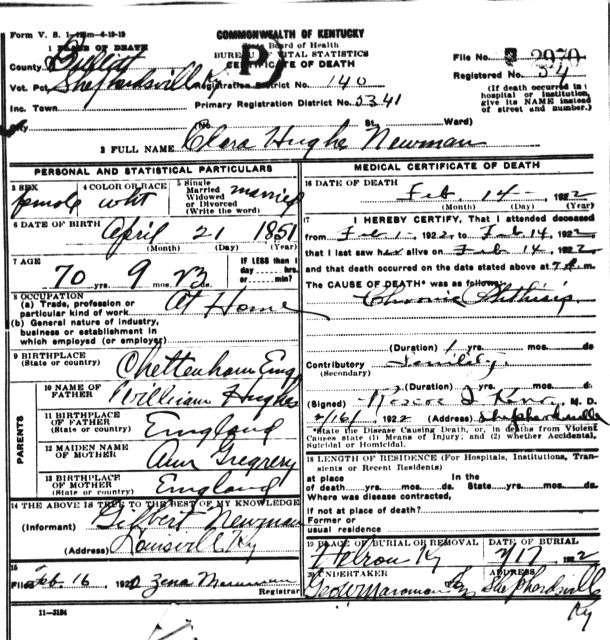 Form V. S. 1-125m-4-19-19
COMMONWEALTH OF KENTUCKY
State Board of Health
BUREAU OF VITAL STATISTICS
CERTIFICATE OF DEATH
1 PLACE OF DEATH
County Bullitt
File No. 2970
Vot. Pct. Shephardsvill Ky Registration District No. 140
Registered No. 34
Inc. Town Primary Registration District No. 5341
(If death occurred in a hospital or institution, give its NAME instead of street and number.)
City (No. St. Ward)
2 FULL NAME Clara Hughe Newman
PERSONAL AND STATISTICAL PARTICULARS
3 SEX female
4 COLOR OR RACE wht
5 Single Married Widowed or Divorced (Write the word) married
6 DATE OF BIRTH April 21 1851
(Month) (Day) (Year)
7 AGE 70 yrs. 9 mos. 23 ds.
IF LESS than 1 day ---- hrs. or ---- min.
8 OCCUPATION
(a) Trade, profession or particular kind of work At Home
(b) General nature of industry, business or establishment in which employed (or employer)
9 BIRTHPLACE (State or country) Chettenham Eng
PARENTS
10 NAME OF FATHER William Hughes
11 BIRTHPLACE OF FATHER (State or country) England
12 MAIDEN NAME OF MOTHER Ann Gregrery
13 BIRTHPLACE OF MOTHER (State or country) England
14 THE ABOVE IS TRUE TO THE BEST OF MY KNOWLEDGE
(Informant) Gilbert Newman
(Address) Louisvill Ky
15
Filed Feb. 16 1922 Zena Registrar
11-3184
MEDICAL CERTIFICATE OF DEATH
16 DATE OF DEATH Feb 14 - 1922
(Month) (Day) (Year)
17 I HEREBY CERTIFY, That I attended deceased
from Feb 1 - 1922 to Feb 14, 1922
that I last saw her alive on Feb 14, 1922
and that death occurred on the date stated above at 7 m.
The CAUSE OF DEATH* was as follows:
Chronic Phthisis
(Duration) 1 yrs. mos. ds.
Contributory (Secondary) Senility
(Duration) yrs. mos. ds.
(Signed) Roscoe I Kerr, M. D.
2/16/ 1922 (Address) Shephardsville
*State the Disease Causing Death, or, in deaths from Violent Causes state (1) Means of Injury; and (2) whether Accidental, Suicidal or Homicidal.
18 LENGTH OF RESIDENCE (For Hospitals, Institutions, Transients or Recent Residents)
At place of death yrs. mos. ds. In the State yrs. mos. ds.
Where was disease contracted, if not at place of death?
Former or usual residence
19 PLACE OF BURIAL OR REMOVAL DATE OF BURIAL
Ky 2/17 1922
20 UNDERTAKER ADDRESS
Geo W Maroman Shephardsvill
Ky